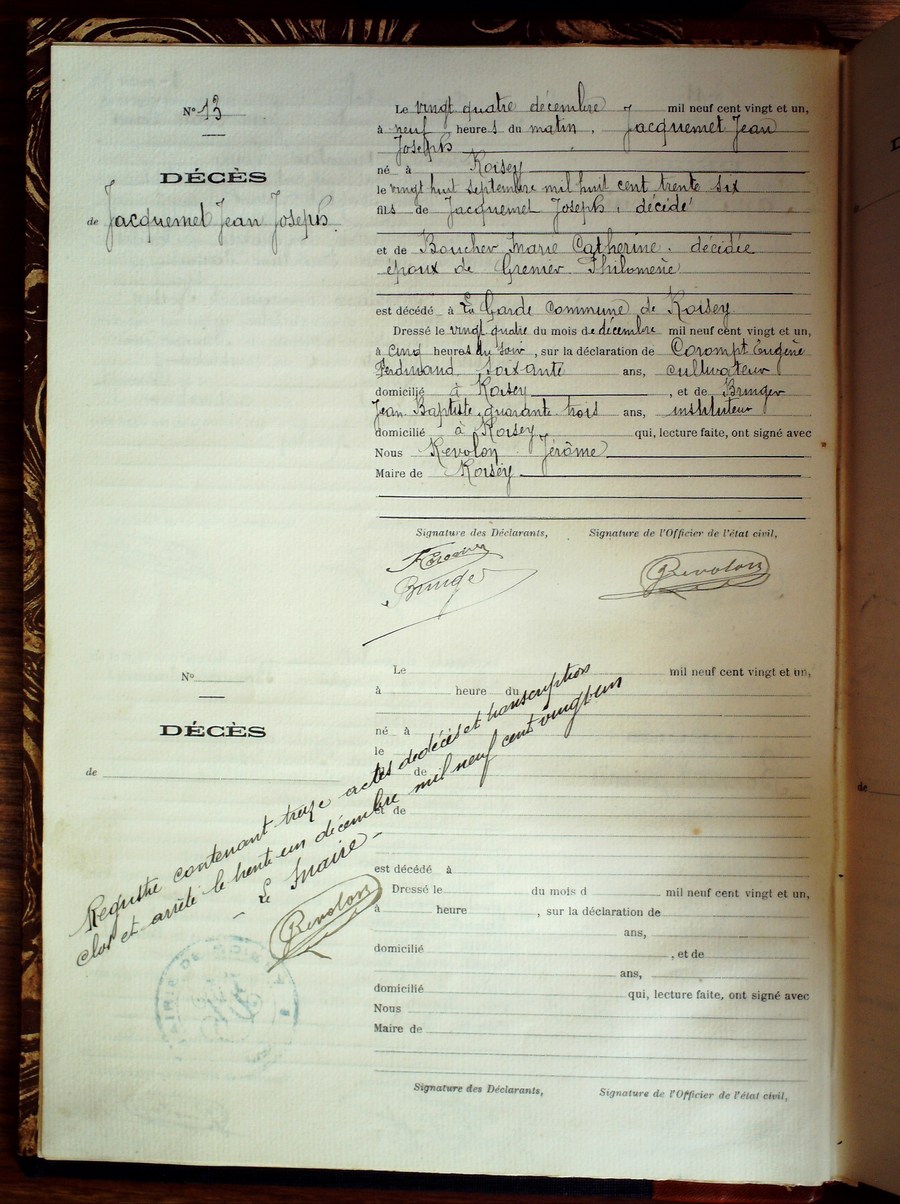 N° 13
DÉCÈS
de Jacquemet Jean Joseph.
Le vingt quatre décembre mil neuf cent vingt et un,
à neuf heures du matin, Jacquemet Jean
Joseph
né à Roisey
le vingt huit septembre mil huit cent trente six
fils de Jacquemet Joseph, décédé
et de Boucher Marie Catherine, décédée
époux de Grenier Philomène
est décédé à La Garde commune de Roisey
Dressé le vingt quatre du mois de décembre mil neuf cent vingt et un,
à cinq heures du soir, sur la déclaration de Corompt Eugène
Ferdinand, soixante ans, cultivateur
domicilié à Roisey, et de Bringer
Jean Baptiste, quarante trois ans, instituteur
domicilié à Roisey qui, lecture faite, ont signé avec
Nous Revolon Jérôme
Maire de Roisey
Signature des Déclarants, Signature de l'Officier de l'état civil,
Bringer
Revolon
N°
DÉCÈS
de
Le mil neuf cent vingt et un,
à heure du
né à
le
de
et de
est décédé à
Dressé le du mois d mil neuf cent vingt et un,
à heure , sur la déclaration de
ans,
domicilié , et de
ans,
domicilié qui, lecture faite, ont signé avec
Nous
Maire de
Signature des Déclarants, Signature de l'Officier de l'état civil,
Registre contenant treize actes de décès et transcription
clos et arrêté le trente un décembre mil neuf cent vingt-un
- Le Maire -
Revolon
MAIRIE DE ROISEY